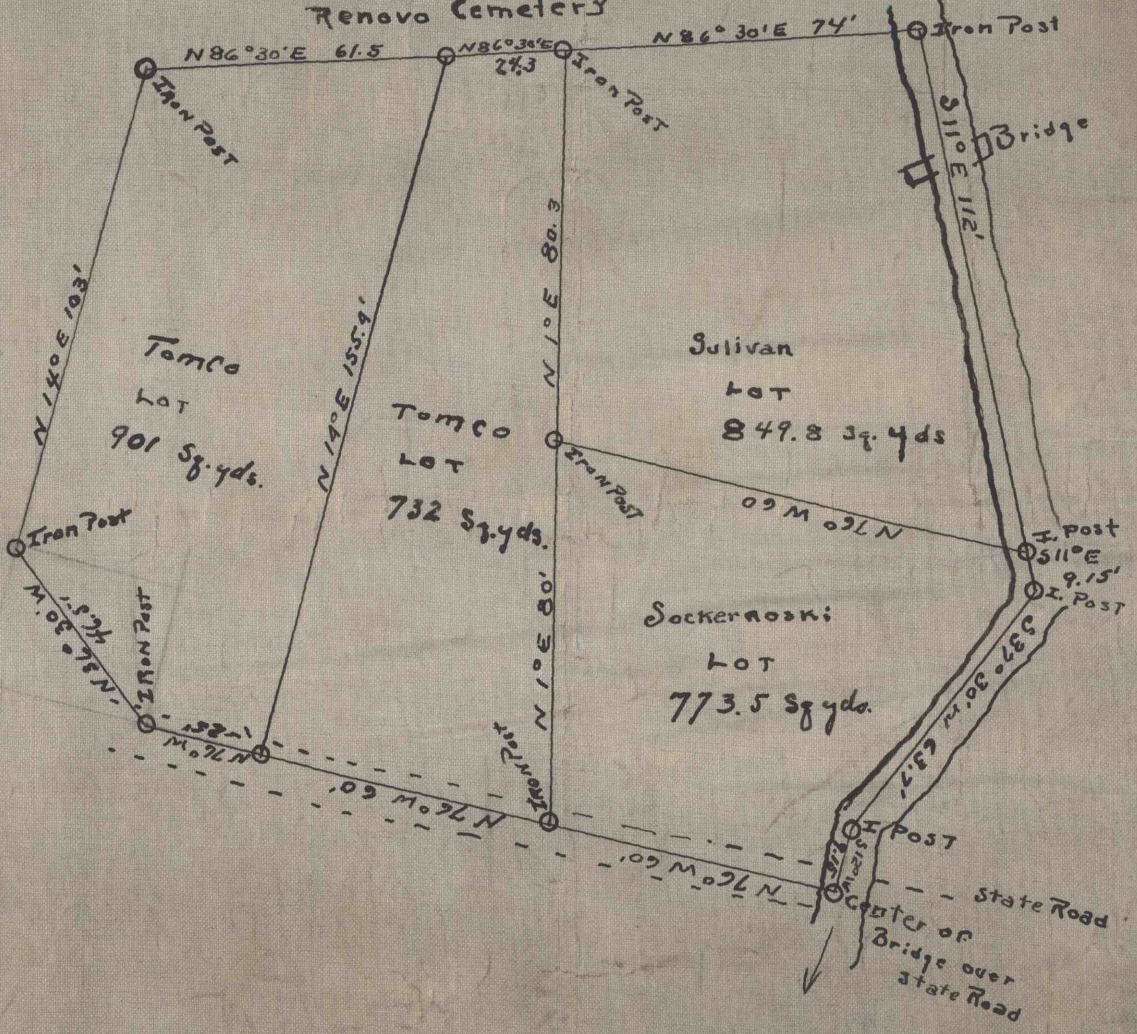 Renovo Cemetery
N 86° 30' E 61.5
N 86° 30' E
24.3
N 86° 30' E 74'
Iron Post
IRON POST
Iron Post
S 11° E 112'
Bridge
N 14° E 103'
N 14° E 155.4'
N 1° E 80.3
Tomco
LOT
901 Sq. yds.
Tomco
LOT
732 Sq. yds.
Sulivan
LOT
849.8 Sq. yds
Iron Post
N 76° W 60
I. Post
S 11° E
9.15'
I. Post
Iron Post
N 36° 30' W.
46.5'
IRON POST
N 1° E 80'
Sockernoski
LOT
773.5 Sq yds.
S 37° 30' W 63.7'
N 76° W
IRON Post
N 76° W 60'
N 76° W 60'
I POST
S 12° W
State Road
Center of
Bridge over
State Road